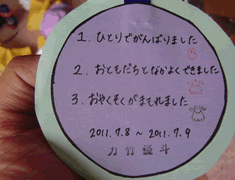 1. ひとりでがんばりました
2. おともだちとなかよくできました
3. おやくそくがまもれました
2011.7.8 ~ 2011.7.9